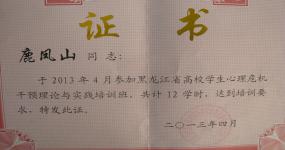 证书
鹿凤山 同志：
于2013年4月参加黑龙江省高校学生心理危机
干预理论与实践培训班，共计12学时，达到培训要
求，特发此证。
二〇一三年四月